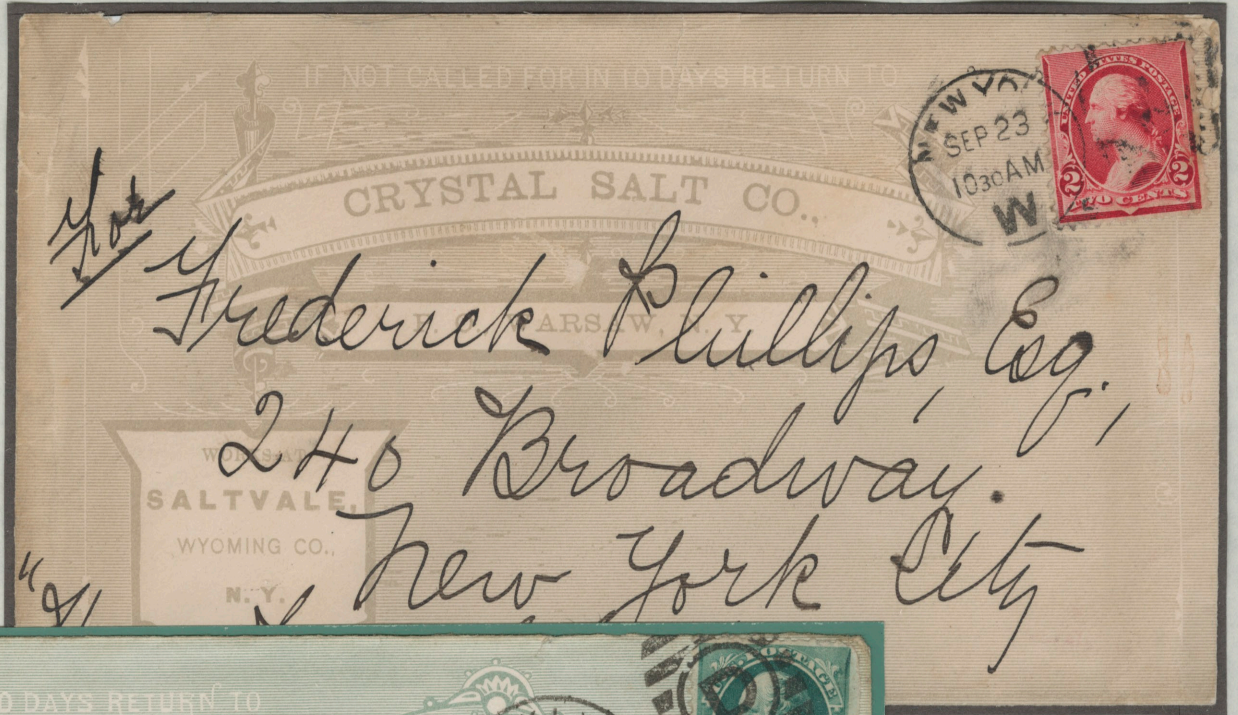 IF NOT CALLED FOR IN 10 DAYS RETURN TO
CRYSTAL SALT CO.,
WARSAW, N. Y.
WORKS AT
SALTVALE,
WYOMING CO.,
N. Y.
NEW YORK
SEP 23
1030AM
W
UNITED STATES POSTAGE
2 2
TWO CENTS
For
Frederick Phillips, Esq.,
240 Broadway.
New York City
0 DAYS RETURN TO
POSTAGE